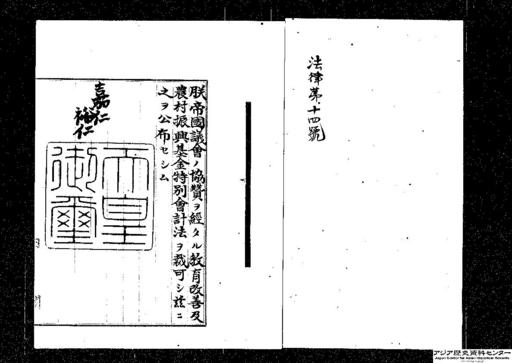 法律第十四號
朕帝國議會ノ協贊ヲ經タル教育改善及
農村振興基金特別會計法ヲ裁可シ玆ニ
之ヲ公布セシム
嘉仁
裕仁
天皇
御璽
アジア歴史資料センター
Japan Center for Asian Historical Records